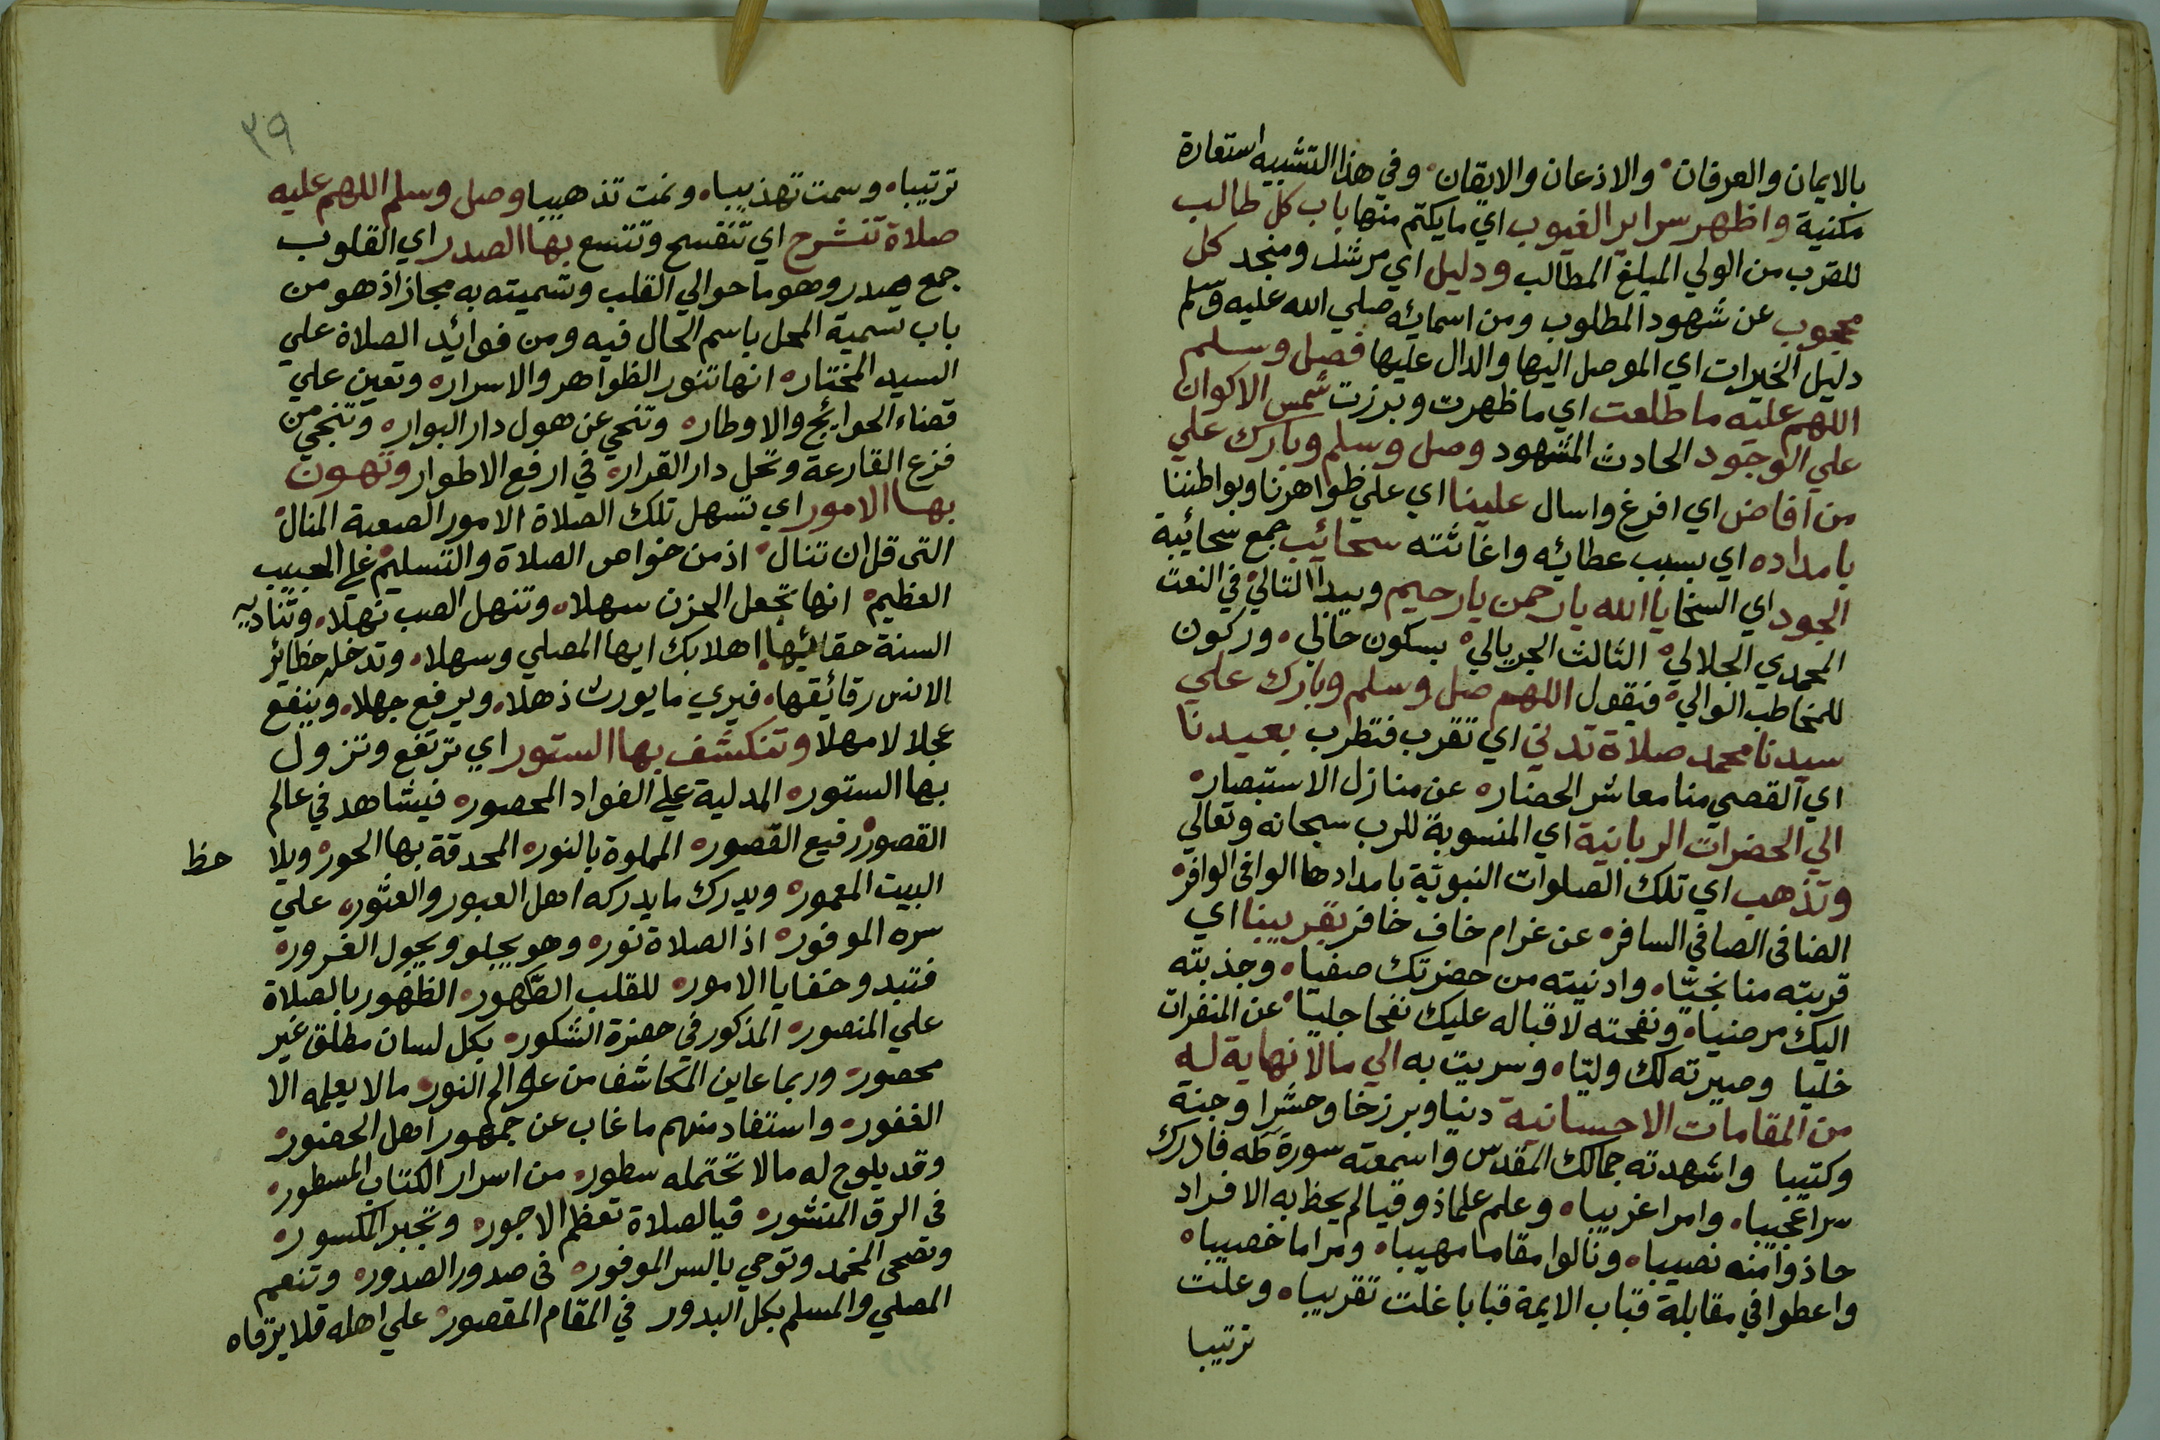 بالايمان والعرفان والاذعان والايقان وفي هذا التشبيه استعارة
مكنية واظهر سراير الغيوب اي ما يكتم منها باب كل طالب
للقرب من الولي المبلغ المطالب ودليل اي مرشد ومنجد كل
محجوب عن شهود المطلوب ومن اسمايه صلي الله عليه وسلم
دليل الخيرات اي الموصل اليها والدال عليها فصل وسلم
اللهم عليه ما طلعت اي ما ظهرت وبرزت شمس الاكوان
علي الوجود الحادث المشهود وصل وسلم وبارك علي
من افاض اي افرغ واسال علينا اي علي ظواهرنا وبواطننا
بامداده اي بسبب عطائه واغاثته سحائب جمع سحائبة
الجود اي السخا يا الله يا رحمن يا رحيم ويبدا التالي في النعت
المحمدي الجلالي الثالث الجريالي بسكون حالي وركون
للمخاطب الوالي فيقول اللهم صل وسلم وبارك علي
سيدنا محمد صلاة تدني اي تقرب فتطرب بعيدنا
اي القصي منا معاشر الحضار عن منازل الاستبصار
الي الحضرات الربانية اي المنسوبة للرب سبحانه وتعالي
وتذهب اي تلك الصلوات النبوية بامدادها الوافي الوافر
الضافي الصافي السافر عن غرام خاف خافر بقريبنا اي
قربته منا نجيا وادنيته من حضرتك صفيا وجذبته
اليك مرضيا ونفحته لاقباله عليك نفحا جليا عن المنفرات
خليا وصيرته لك وليا وسريت به الي ما لا نهاية له
من المقامات الاحسانية دنيا وبرزخا وحشرا وجنة
وكثيبا واشهدته جمالك المقدس واسمعته سورة طه فادرك
سرا عجيبا وامرا غريبا وعلم علما ذوقيا لم يحظ به الا افراد
حاذوا منه نصيبا ونالوا مقاما مهيبا ومراما خصيبا
واعطوا في مقابلة قباب الايمة قبابا غلت تقريبا وعلت
ترتيبا
٣٩
ترتيبا وسمت تهذيبا ونمت تذهيبا وصل وسلم اللهم عليه
صلاة تنشرح اي تنفسح وتتسع بها الصدر اي القلوب
جمع صدر وهو ما حوالي القلب وتسميته به مجاز اذ هو من
باب تسمية المحل باسم الحال فيه ومن فوائد الصلاة علي
السيد المختار انها تنور الظواهر والاسرار وتعين علي
قضاء الحوايج والاوطار وتنحي عن هول دار البوار وتنجي من
فزع القارعة وتحل دار القرار في ارفع الاطوار وتهون
بها الامور اي تسهل تلك الصلاة الامور الصعبة المنال
التي قل ان تنال اذ من خواص الصلاة والتسليم علي الحبيب
العظيم انها تجعل الحزن سهلا وتنهل الصب نهلا وتناديه
السنة حقائقها اهلا بك ايها المصلي وسهلا وتدخله حظائر
الانس رقائقها فيري ما يورث ذهلا ويرفع جهلا وينفع
عجلا لا مهلا وتنكشف بها الستور اي ترتفع وتزول
بها الستور المدلية علي الفواد المحصور فيشاهد في عالم
القصور رفيع القصور المملوة بالنور المحدقة بها الحور ويلا حظ
البيت المعمور ويدرك ما يدركه اهل العبور والعثور علي
سره الموفور اذ الصلاة نور وهو يجلو ويحول الغرور
فتبدو خفايا الامور للقلب الطهور الظهور بالصلاة
علي المنصور المذكور في حضرة الشكور بكل لسان مطلق غير
محصور وربما عاين المكاشف من عوالم النور ما لا يعلمه الا
الغفور واستفاد منهم ما غاب عن جمهور اهل الحضور
وقد يلوح له ما لا تحتمله سطور من اسرار الكتاب المسطور
في الرق المنشور فبالصلاة تعظم الاجور وتجبر الكسور
وتضحي المخمد وتوحي بالسر الموفور في صدور الصدور وتنعم
المصلي والمسلم بكل البدور في المقام المقصور علي اهله فلا يرقاه